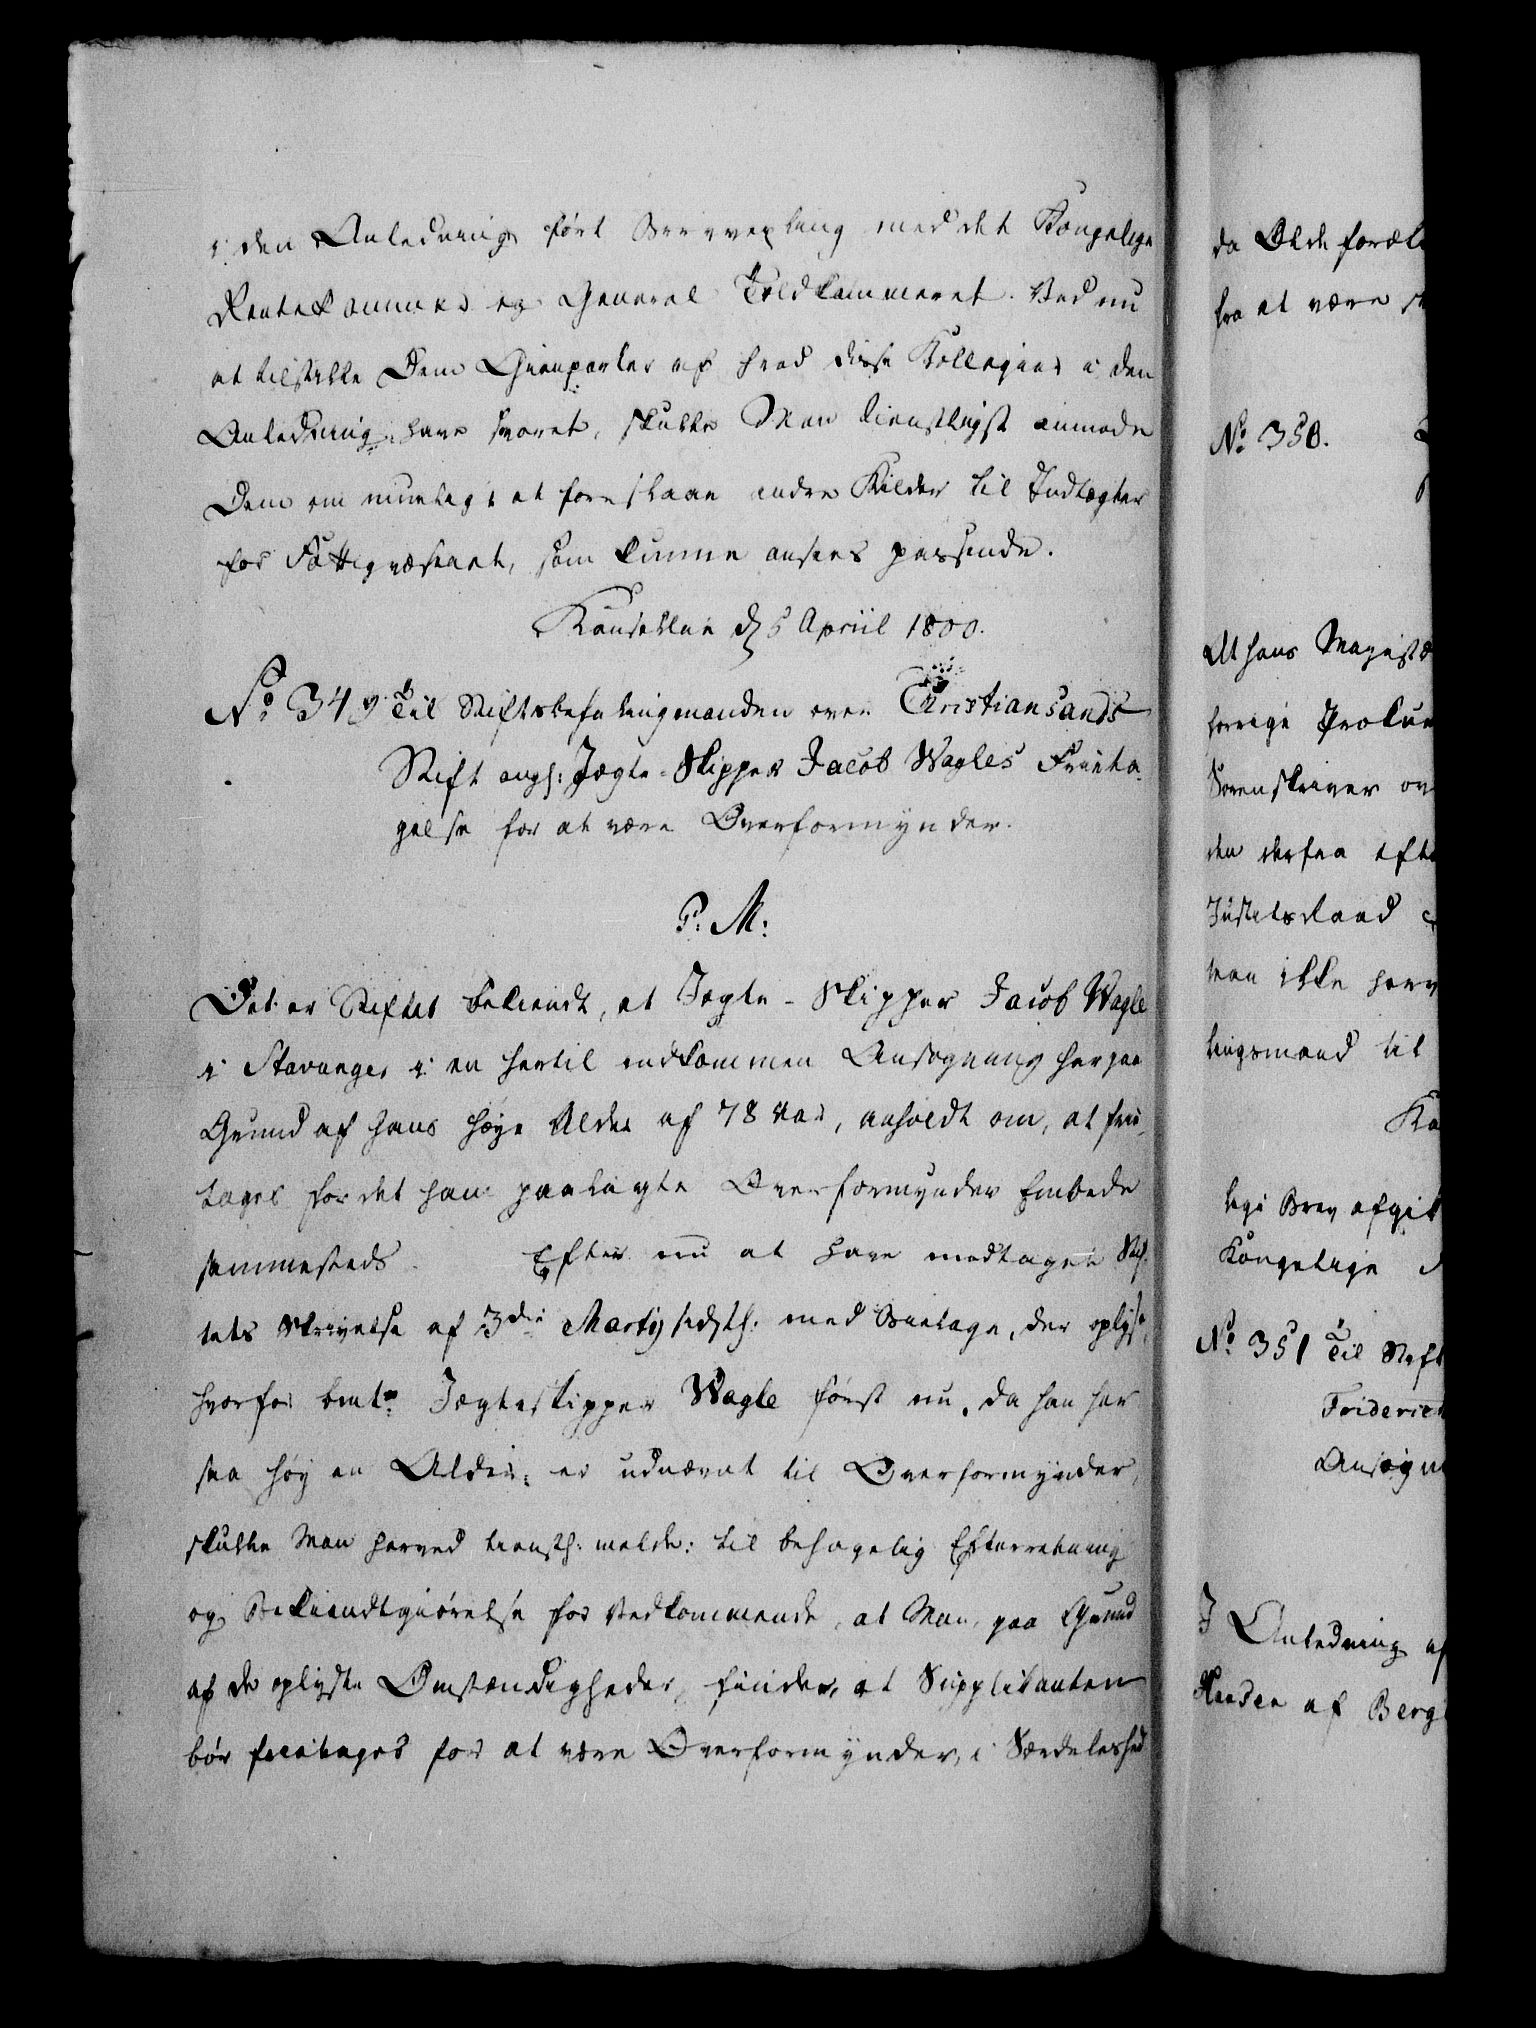 i den Anledning ført Brevvexling med det Kongelige
Rentekammer og General Toldkammeret. Ved nu
at tilstille Dem Gienparter af hvad disse Kollegier i den
Anledning have svaret, skulle Man tienstligst anmode
Dem om muelig: at foreslaae andre Kilder til Indtægter
for Fattigvæsenet, som kunne ansees passende.
Kancelliet d. 5 Apriil 1800.
No. 349. Til Stiftsbefalingmanden over Christiansands
Stift angl: Jægte-Skipper Jacob Wagles Friita-
gelse for at være Overformynder.
P. M:
Det er Stiftet bekiendt, at Jægte-Skipper Jacob Wagle
i Stavanger i en hertil indkommen Ansøgning har paa
Grund af hans høye Alder af 78 Aar, anholdt om, at frii-
tages for det ham paalagte Overformynder Embede
sammesteds. Efter nu at have modtaget Stif-
tets Skrivelse af 3die Martij sidstl. med Bielage, der oplyse,
hvorfor bmte Jægteskipper Wagle først nu, da han har
saa høy en Alder, er udnævnt til Overformynder,
skulle Man herved tienstl. melde: til behagelig Efterretning
og Bekiendtgiørelse for Vedkommende, at Man, paa Grund
af de oplyste Omstændigheder, finder, at Supplikanten
bør friitages for at være Overformynder, i Særdeleshed
da Olde foræl
fra at være
No. 350.
At hans Majestæ
forrige Prokur
Sorenskriver ov
den derfra efte
Justitsraad
man ikke herv
lingsmand til
Ka
lige Brev afgit
Kongelige
No. 351 Til Stift
Fridericks
Ansøgn
I Anledning af
Hansen af Berg